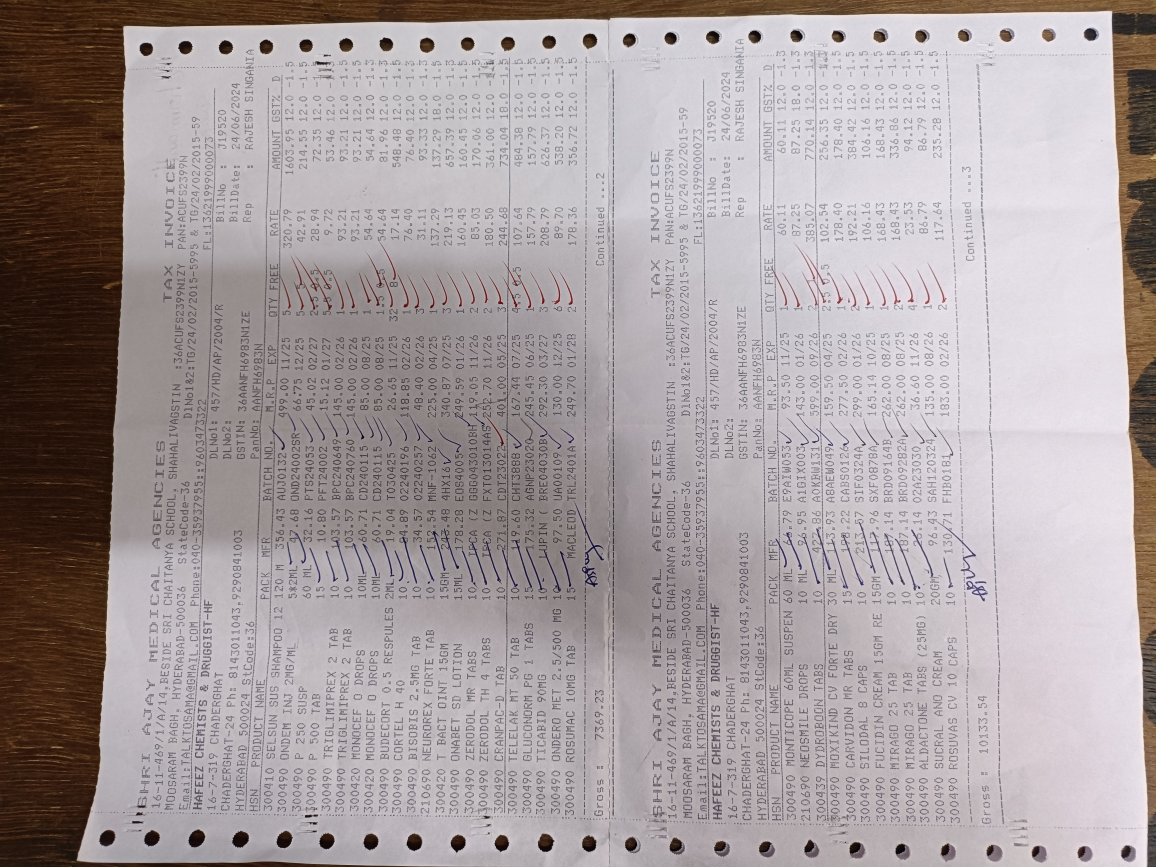 SHRI AJAY MEDICAL AGENCIES TAX INVOICE
16-11-469/1/A/14,BESIDE SRI CHAITANYA SCHOOL, SHAHALIVAGSTIN :36ACUFS2399N1ZY PAN:ACUFS2399N
MOOSARAM BAGH, HYDERABAD-500036 StateCode-36 DlNo1&2:TG/24/02/2015-5995 & TG/24/02/2015-59
Email:TALKTOSAMA@GMAIL.COM Phone:040-35937955::9603473322 FL:13621999000073
HAFEEZ CHEMISTS & DRUGGIST-HF DLNo1: 457/HD/AP/2004/R BillNo : J19520
16-7-319 CHADERGHAT DLNo2: BillDate: 24/06/2024
CHADERGHAT-24 Ph: 8143011043,9290841003 GSTIN: 36AANFH6983N1ZE Rep : RAJESH SINGANIA
HYDERABAD 500024 StCode:36 PanNo: AANFH6983N
HSN PRODUCT NAME PACK MFR BATCH NO. M.R.P EXP QTY FREE RATE AMOUNT GST% D
300410 SELSUN SUS SHAMPOO 12 120 M 356.43 AUJ0135 499.00 11/25 5 320.79 1603.95 12.0 -1.5
300490 ONDEM INJ 2MG/ML 5*2ML OND24002SR 66.75 12/25 42.91 214.55 12.0 -1.5
300490 P 250 SUSP 60 ML 32.16 PTS24053 45.02 02/27 28.94 72.35 12.0 -1.5
300490 P 500 TAB 15 10.80 PFT24002 15.12 01/27 9.72 53.46 12.0 -1.5
300490 TRIGLIMIPREX 2 TAB 10 103.57 BPC240249 145.00 02/26 1 93.21 93.21 12.0 -1.5
300490 TRIGLIMIPREX 2 TAB 10 103.57 BPC240760 145.00 03/26 1 93.21 93.21 12.0 -1.5
300420 MONOCEF O DROPS 10ML 60.71 CD240115 85.00 08/25 1 54.64 54.64 12.0 -1.3
300420 MONOCEF O DROPS 10ML 60.71 CD240115 85.00 08/25 54.64 81.96 12.0 -1.3
300490 BUDECORT 0.5 RESPULES 2ML 19.04 TO30425 26.65 11/25 32 17.14 548.48 12.0 -1.5
300490 CORTEL H 40 10 84.89 02240196 118.85 02/26 1 76.40 76.40 12.0 -1.5
300490 BISOBIS 2.5MG TAB 10 34.57 02240257 48.40 02/26 3 31.11 93.33 12.0 -1.3
210690 NEUROREX FORTE TAB 10 MNF-1062 225.00 04/25 1 137.29 137.29 18.0 -1.5
300420 T BACT OINT 15GM 15GM 4HX16 340.87 07/25 3 219.13 657.39 12.0 -1.5
300490 ONABET SD LOTION 15ML 178.28 EOS40054 249.59 01/26 1 160.45 160.45 12.0 -1.5
300490 ZERODOL MR TABS 10 IPCA (Z GGB043010BH 119.05 11/26 2 85.03 170.06 12.0 -1.5
300490 ZERODOL TH 4 TABS 10 IPCA (Z FXT013014AS 252.70 11/26 2 180.50 361.00 12.0 -1.5
300490 CRANPAC-D TAB 10 271.87 CDT23022 401.00 05/25 3 244.68 734.04 18.0 -1.5
300490 TELELAM MT 50 TAB 10 CHT388B 167.44 07/25 107.64 484.38 12.0 -1.5
300490 GLUCONORM PG 1 TABS 15 175.32 AGNP23020 245.45 06/25 1 157.79 157.79 12.0 -1.5
300490 TICABID 90MG 10 LUPIN ( BRE04030B 292.30 03/27 3 208.79 626.37 12.0 -1.3
300490 ONDERO MET 2.5/500 MG 10 97.50 UAA0109 130.00 12/25 6 89.70 538.20 12.0 -1.5
300490 ROSUMAC 10MG TAB 15 MACLEOD TRL2401A 249.70 01/28 2 178.36 356.72 12.0 -1.5
Gross : 7369.23 Continued ...2
SHRI AJAY MEDICAL AGENCIES TAX INVOICE
16-11-469/1/A/14,BESIDE SRI CHAITANYA SCHOOL, SHAHALIVAGSTIN :36ACUFS2399N1ZY PAN:ACUFS2399N
MOOSARAM BAGH, HYDERABAD-500036 StateCode-36 DlNo1&2:TG/24/02/2015-5995 & TG/24/02/2015-59
Email:TALKTOSAMA@GMAIL.COM Phone:040-35937955::9603473322 FL:13621999000073
HAFEEZ CHEMISTS & DRUGGIST-HF DLNo1: 457/HD/AP/2004/R BillNo : J19520
16-7-319 CHADERGHAT DLNo2: BillDate: 24/06/2024
CHADERGHAT-24 Ph: 8143011043,9290841003 GSTIN: 36AANFH6983N1ZE Rep : RAJESH SINGANIA
HYDERABAD 500024 StCode:36 PanNo: AANFH6983N
HSN PRODUCT NAME PACK MFR BATCH NO. M.R.P EXP QTY FREE RATE AMOUNT GST% D
300490 MONTICOPE 60ML SUSPEN 60 ML 66.79 E9AIW053 93.50 11/25 1 60.11 60.11 12.0 -1.3
210690 NEOSMILE DROPS 10 ML 96.95 A1GIX003 143.00 01/26 1 87.25 87.25 18.0 -1.5
300439 DYDROBOON TABS 10 AOKBW131 599.00 09/26 2 385.07 770.14 12.0 -1.3
300490 MOXIKIND CV FORTE DRY 30 ML 113.93 A8AEW049 159.50 04/25 102.54 256.35 12.0 -1.3
300490 CARVIDON MR TABS 15 198.22 CABS0126 277.50 02/26 1 178.40 178.40 12.0 -1.5
300490 SILODAL B CAPS 10 213.57 SIF0324A 299.00 01/26 2 192.21 384.42 12.0 -1.5
300490 FUCIDIN CREAM 15GM RE 15GM 117.96 SXF0878A 165.14 10/25 1 106.16 106.16 12.0 -1.5
300490 MIRAGO 25 TAB 10 187.14 BRD09164B 262.00 08/25 1 168.43 168.43 12.0 -1.5
300490 MIRAGO 25 TAB 10 187.14 BRD09282A 262.00 11/25 2 168.43 336.86 12.0 -1.5
300490 ALDACTONE TABS (25MG) 10 26.14 02A23030 36.60 11/26 4 23.53 94.12 12.0 -1.5
300490 SUCRAL ANO CREAM 20GM 96.43 SAH120324 135.00 08/26 1 86.79 86.79 12.0 -1.5
300490 ROSUVAS CV 10 CAPS 10 130.71 FHB0181 183.00 02/26 2 117.64 235.28 12.0 -1.5
Gross : 10133.54 Continued ...3